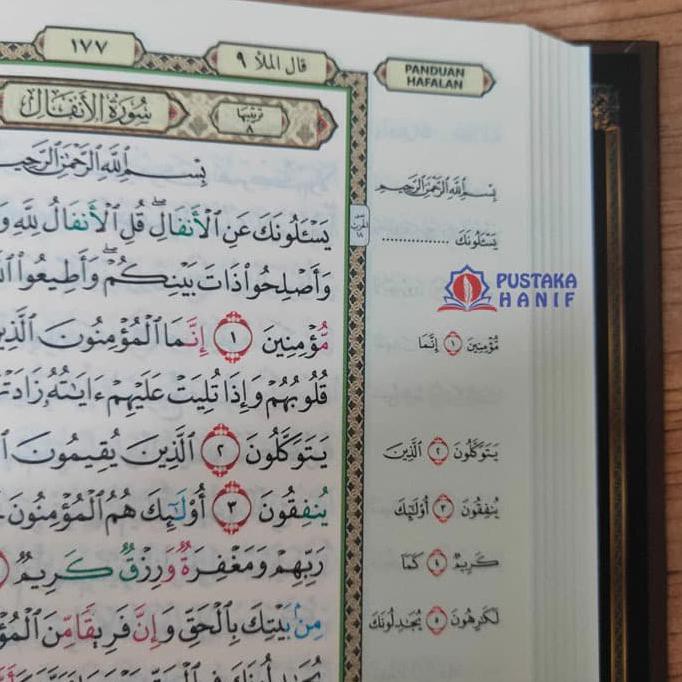 ١٧٧
قال الملأ ٩
PANDUAN
HAFALAN
سُورَةُ الأَنفَالِ
ترتيبها
٨
بِسْمِ ٱللَّهِ ٱلرَّحْمَٰنِ ٱلرَّحِيمِ
يَسْـَٔلُونَكَ عَنِ ٱلْأَنفَالِ ۖ قُلِ ٱلْأَنفَالُ لِلَّهِ
وَأَصْلِحُوا۟ ذَاتَ بَيْنِكُمْ ۖ وَأَطِيعُوا۟
مُّؤْمِنِينَ ١ إِنَّمَا ٱلْمُؤْمِنُونَ
قُلُوبُهُمْ وَإِذَا تُلِيَتْ عَلَيْهِمْ ءَايَٰتُهُۥ
يَتَوَكَّلُونَ ٢ ٱلَّذِينَ يُقِيمُونَ
يُنفِقُونَ ٣ أُو۟لَٰٓئِكَ هُمُ ٱلْمُؤْمِنُونَ
رَبِّهِمْ وَمَغْفِرَةٌ وَرِزْقٌ كَرِيمٌ
مِنۢ بَيْتِكَ بِٱلْحَقِّ وَإِنَّ فَرِيقًا مِّنَ
بِسْمِ ٱللَّهِ ٱلرَّحْمَٰنِ ٱلرَّحِيمِ
يَسْـَٔلُونَكَ ................
PUSTAKA
HANIF
مُّؤْمِنِينَ ١ إِنَّمَا
يَتَوَكَّلُونَ ٢ ٱلَّذِينَ
يُنفِقُونَ ٣ أُو۟لَٰٓئِكَ
كَرِيمٌ ٤ كَمَآ
لَكَٰرِهُونَ ٥ يُجَٰدِلُونَكَ